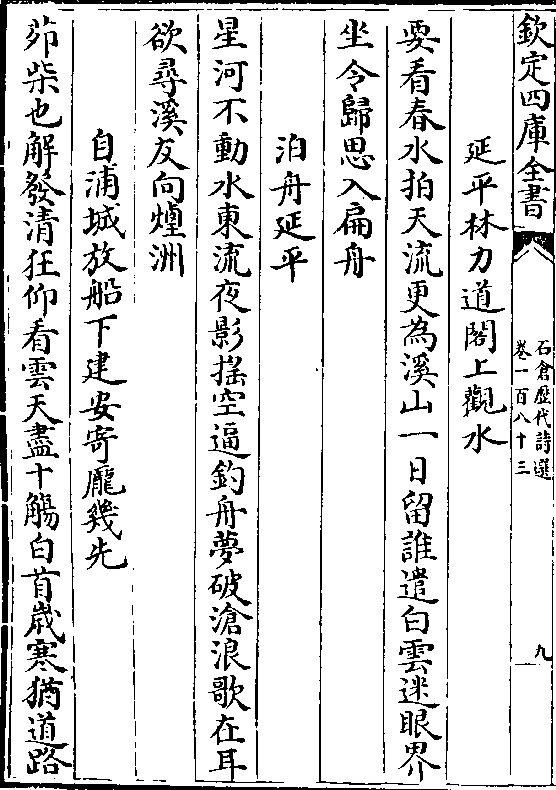 欽定四庫全書
石倉歷代詩選
卷一百八十三
九
延平林力道閣上觀水
要看春水拍天流更為溪山一日留誰遣白雲迷眼界
坐令歸思入扁舟
泊舟延平
星河不動水東流夜影搖空逼釣舟夢破滄浪歌在耳
欲尋溪友向煌洲
自浦城放船下建安寄龎幾先
茆柴也解發清狂仰看雲天盡十觴白首歲寒猶道路